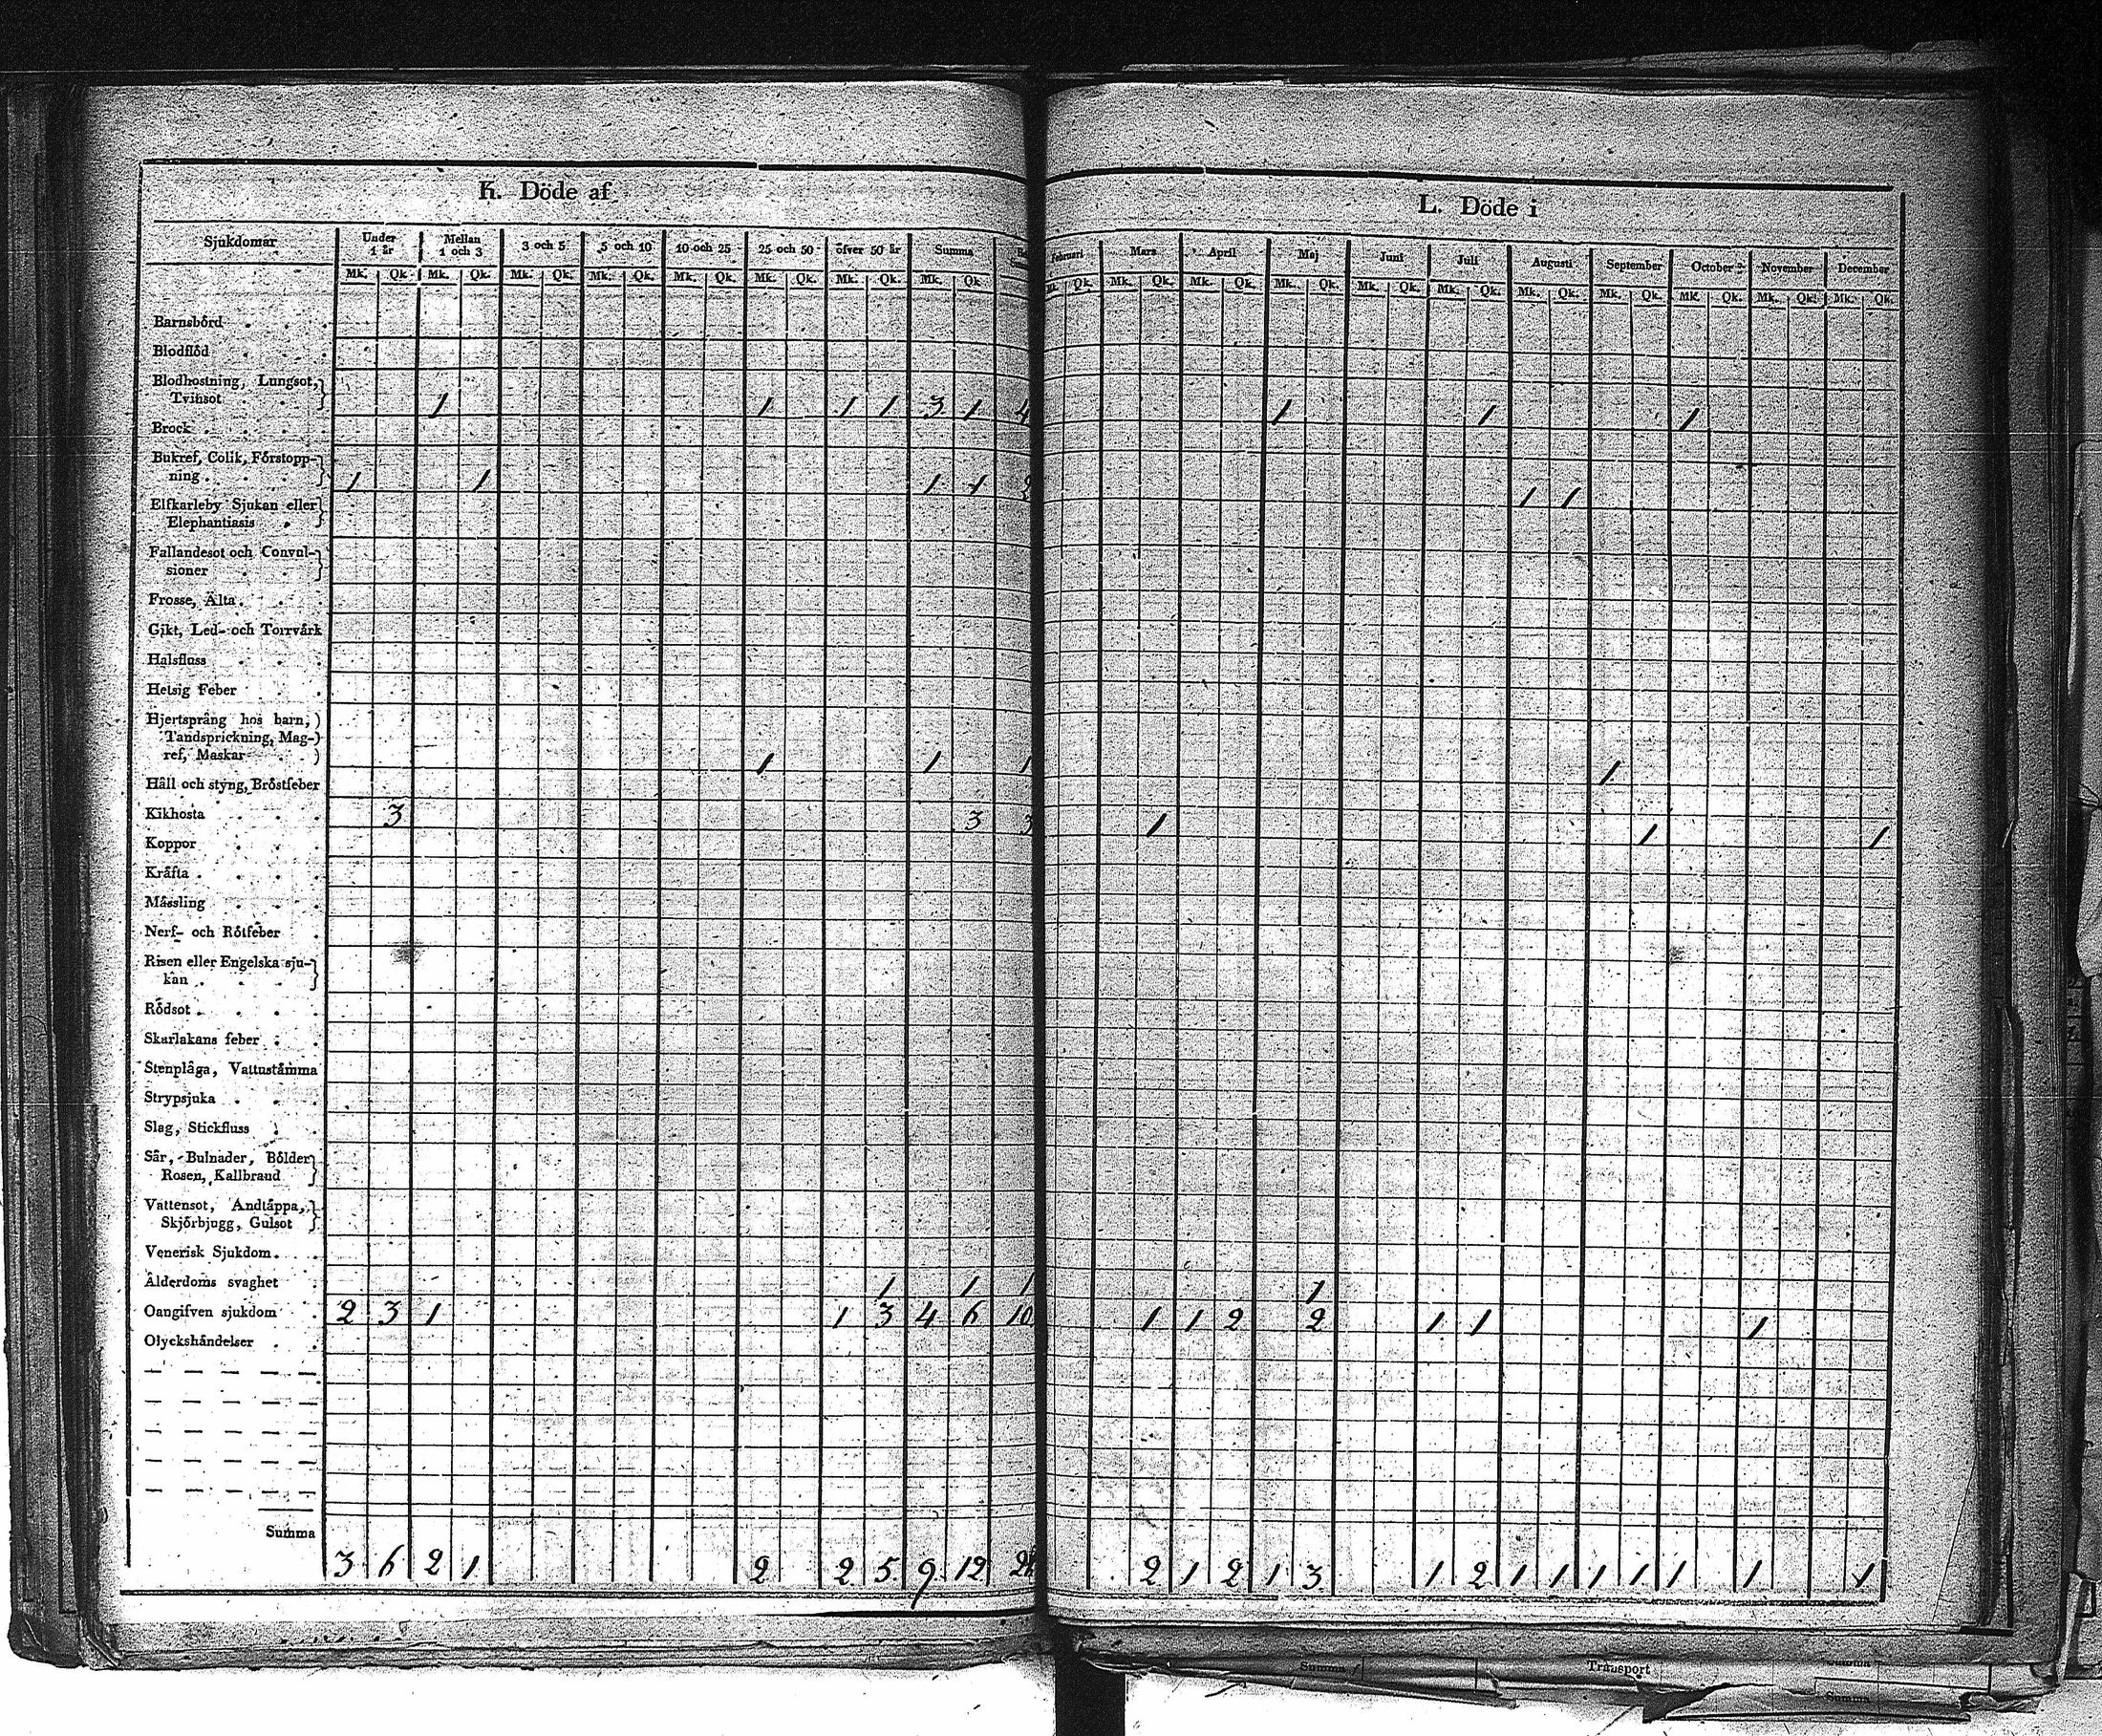 K. Döde af
L. Döde i
Sjukdomar Under 1 år Mellan 1 och 3 3 och 5 5 och 10 10 och 25 25 och 50 öfver 50 år Summa
Februari Mars April Maj Juni Juli Augusti September October November December
Mk. Qk. Mk. Qk. Mk. Qk. Mk. Qk. Mk. Qk. Mk. Qk. Mk. Qk. Mk. Qk
Mk. Qk. Mk. Qk. Mk. Qk. Mk. Qk. Mk. Qk. Mk. Qk. Mk. Qk. Mk. Qk. Mk. Qk. Mk. Qk. Mk. Qk.
Barnsbörd
Blodflöd
Blodhostning, Lungsot,
Tvinsot 1 1 1 1 3 1 4 1 1 1
Brock
Bukref, Colik, Förstopp-
ning 1 1 1 1 2 1 1
Elfkarleby Sjukan eller
Elephantiasis
Fallandesot och Convul-
sioner
Frosse, Älta
Gikt, Led- och Torrvärk
Halsfluss
Hetsig Feber
Hjertsprång hos barn,
Tandsprickning, Mag-
ref, Maskar 1 1 1 1
Håll och styng, Bröstfeber
Kikhosta 3 3 3 1 1 1
Koppor
Kräfta
Mässling
Nerf- och Rötfeber
Risen eller Engelska sju-
kan
Rödsot
Skarlakans feber
Stenplåga, Vattustämma
Strypsjuka
Slag, Stickfluss
Sår, Bulnader, Bölder
Rosen, Kallbrand
Vattensot, Andtäppa,
Skjörbjugg, Gulsot
Venerisk Sjukdom
Ålderdoms svaghet 1 1 1 1
Oangifven sjukdom 2 3 1 1 3 4 6 10 1 1 2 2 1 1 1
Olyckshändelser
Summa
3 6 2 1 2 2 5 9 12 2 1 2 1 3 1 2 1 1 1 1 1 1 1
Summa Transport Summa
Summa